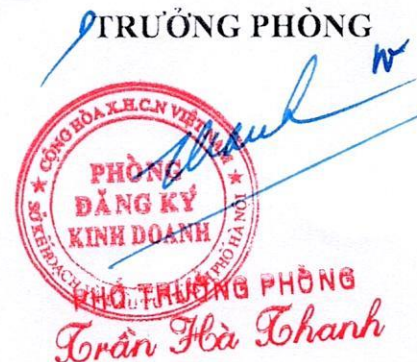 TRƯỞNG PHÒNG
CỘNG HÒA X.H.C.N VIỆT NAM
PHÒNG
ĐĂNG KÝ
KINH DOANH
SỞ KẾ HOẠCH
PHỐ HÀ NỘI
PHÓ TRƯỞNG PHÒNG
Trần Hà Thanh